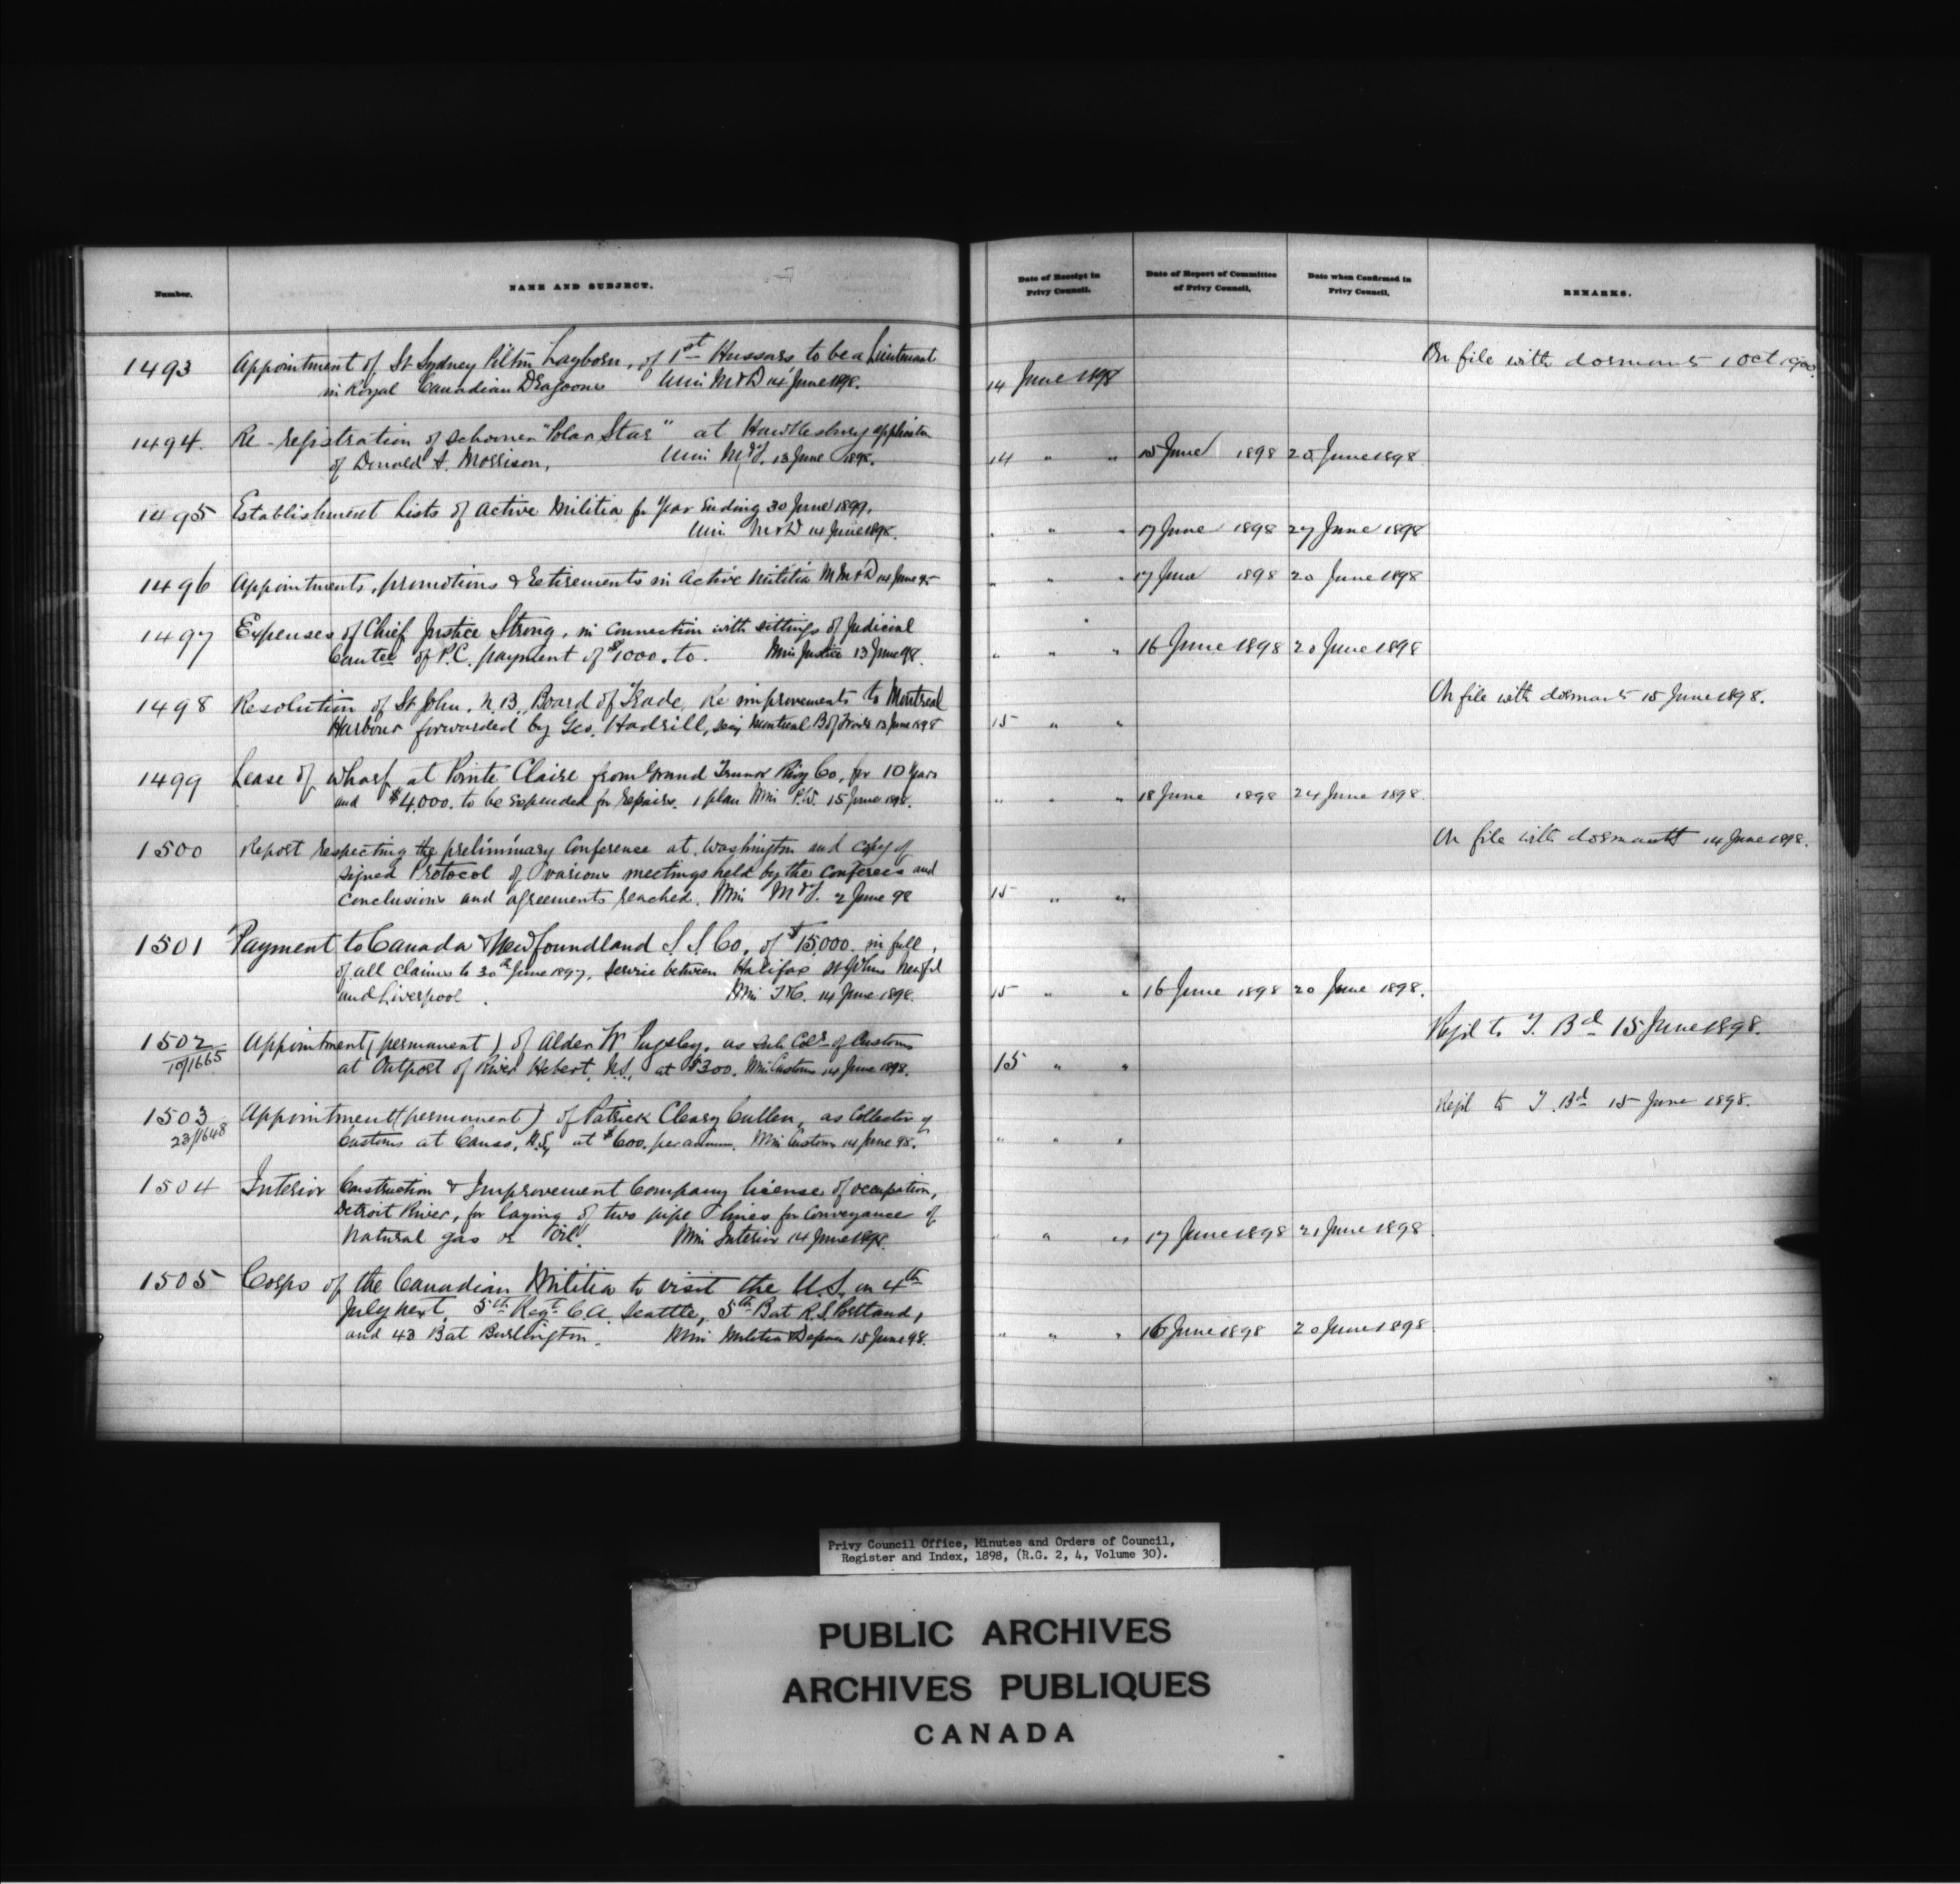 Number.
NAME AND SUBJECT.
Date of Receipt in Privy Council.
Date of Report of Committee of Privy Council,
Date when Confirmed in Privy Council,
REMARKS.
1493 Appointment of Lt Sydney Layborn, of 1st Hussars to be a Lieutenant
in Royal Canadian Dragoons Min M & D 14 June 1898. 14 June 1898 On file with dormants 1 Oct 1900.
1494. Re-registration of Schooner "Polar Star" at Hawkesbury application
of Donald A. Morrison, Min M & F. 13 June 1898. 14 " " 15 June 1898 25 June 1898
1495 Establishment Lists of Active Militia for Year Ending 30 June 1899.
Min M & D 14 June 1898. " " " 17 June 1898 27 June 1898
1496 Appointments, promotions & Retirements in Active Militia M M & D 14 June 98 " " " 17 June 1898 20 June 1898
1497 Expenses of Chief Justice Strong, in connection with sittings of Judicial
Comtee of P.C. payment of $1000. to. Min Justice 13 June 98. " " " 16 June 1898 20 June 1898
1498 Resolution of St John, N.B. Board of Trade, Re improvements to Montreal
Harbour forwarded by Geo. Hadrill, Secy Montreal B of Trade 13 June 1898 15 " " On file with dormants 15 June 1898.
1499 Lease of wharf at Pointe Claire from Grand Trunk Rwy Co, for 10 Years
and $4,000. to be expended for repairs. 1 plan Min P.W. 15 June 1898. " " " 18 June 1898 24 June 1898.
1500 Report respecting the preliminary Conference at Washington and copy of
signed Protocol of various meetings held by the Conferees and
conclusions and agreements reached. Min M & F. 2 June 98 15 " " On file with dormants 14 June 1898.
1501 Payment to Canada & Newfoundland S. S. Co. of $15,000. in full,
of all claims to 30th June 1897, service between Halifax St Johns Newfd
and Liverpool. Min T & C. 14 June 1898. 15 " " 16 June 1898 20 June 1898.
1502 Appointment (permanent) of Alder W Pugsley, as Sub Colr of Customs
10/1665 at Outpost of River Hebert, N.S., at $300. Min Customs 14 June 1898. 15 " " Refd to T. Bd 15 June 1898.
1503 Appointment (permanent) of Patrick Cleary Cullen, as Collector of
23/1648 Customs at Canso, N.S, at $600. per annum. Min Customs 14 June 98. " " " Refd to T. Bd 15 June 1898.
1504 Interior Construction & Improvement Company license of occupation,
Detroit River, for laying of two pipe lines for conveyance of
Natural gas or oil. Min Interior 14 June 1898. " " " 17 June 1898 21 June 1898.
1505 Corps of the Canadian Militia to visit the U.S. on 4th
July next, 5th Regt C.A. Seattle, 5th Bat R.S. Portland,
and 43 Bat Burlington. Min Militia & Defence 15 June 98. " " " 16 June 1898 20 June 1898.
Privy Council Office, Minutes and Orders of Council,
Register and Index, 1898, (R.G. 2, 4, Volume 30).
PUBLIC ARCHIVES
ARCHIVES PUBLIQUES
CANADA